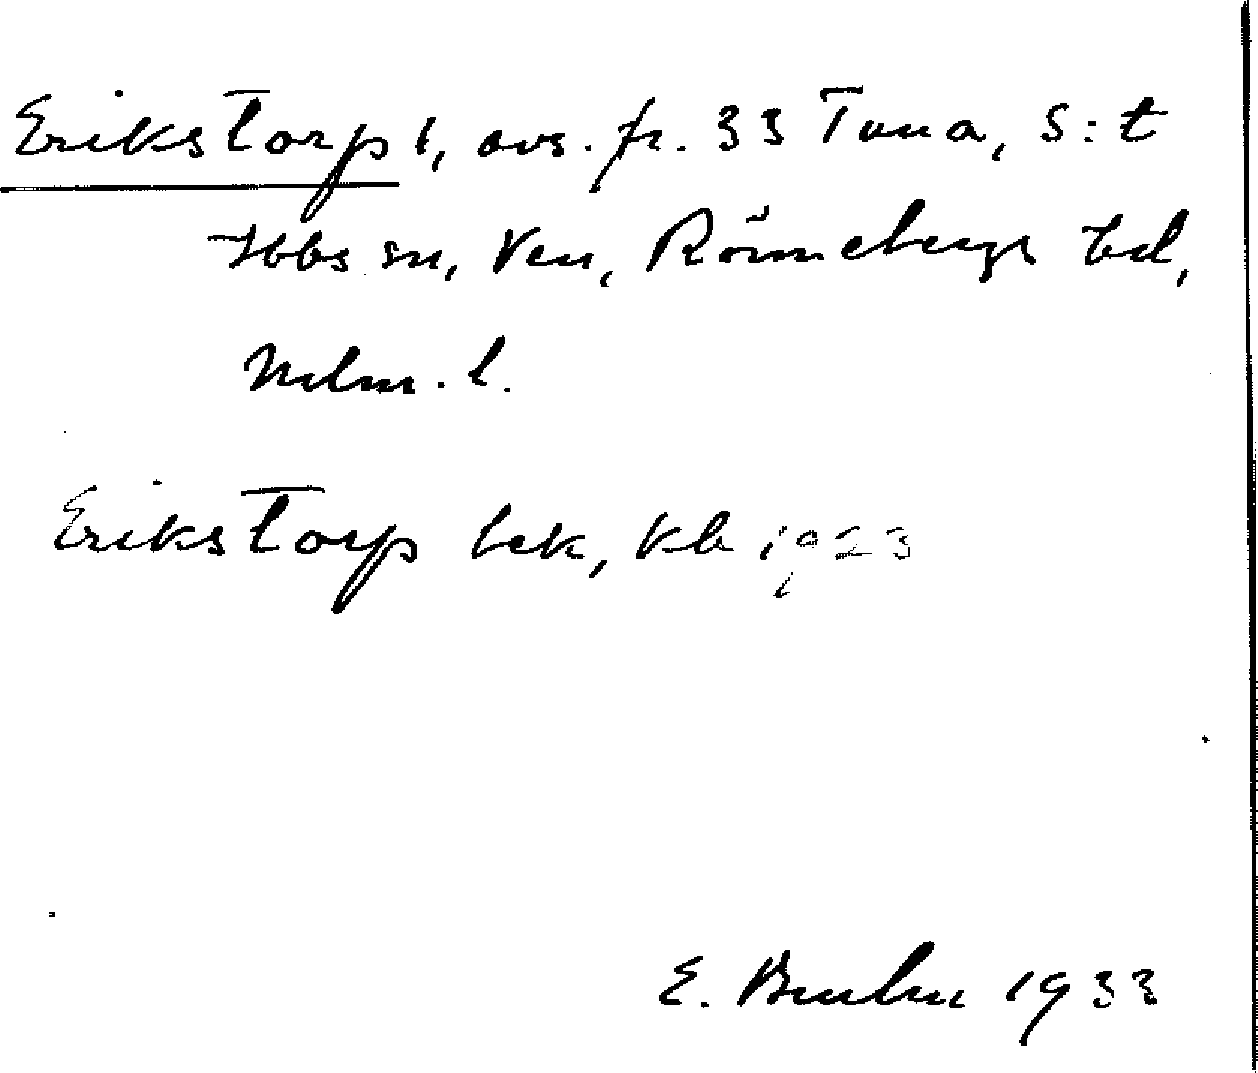 Erikstorp l, avs. fr. 33 Tuna, S:t
Ibbs sn, Ven, Rönnebergs hd,
Malm. l.
Erikstorp lek, kb 1923
E. 1933